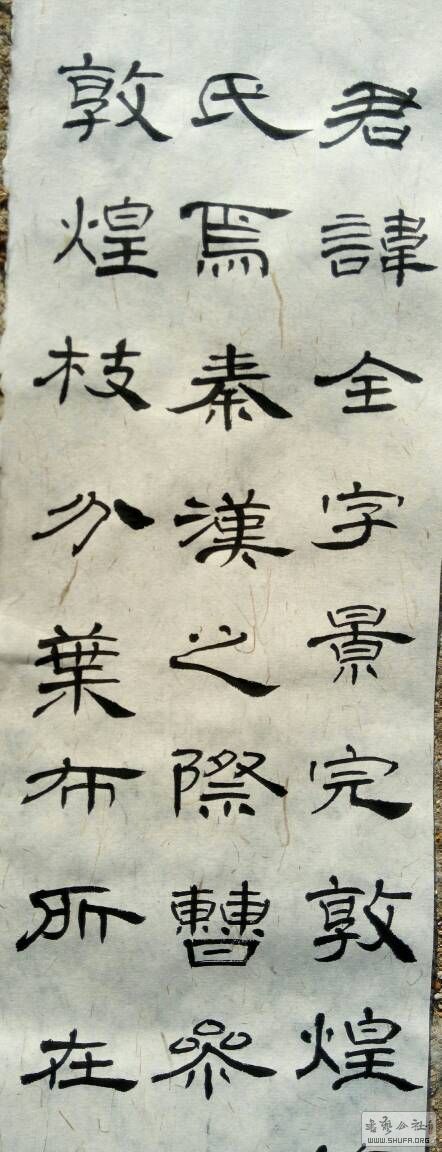 君諱全字景完敦煌
氏焉秦漢之際曹參
敦煌枝分葉布所在
WWW.SHUFA.ORG